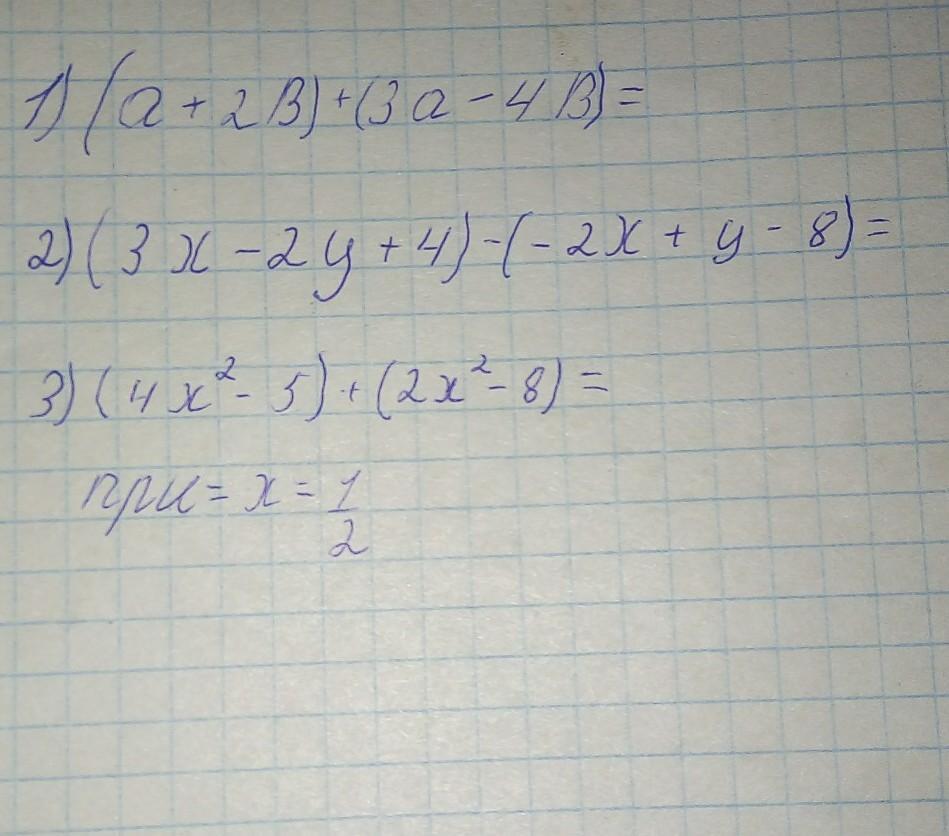 1) (a + 2B) + (3a - 4B) =
2) (3x - 2y + 4) - (-2x + y - 8) =
3) (4x² - 5) + (2x² - 8) =
при = x = 1/2